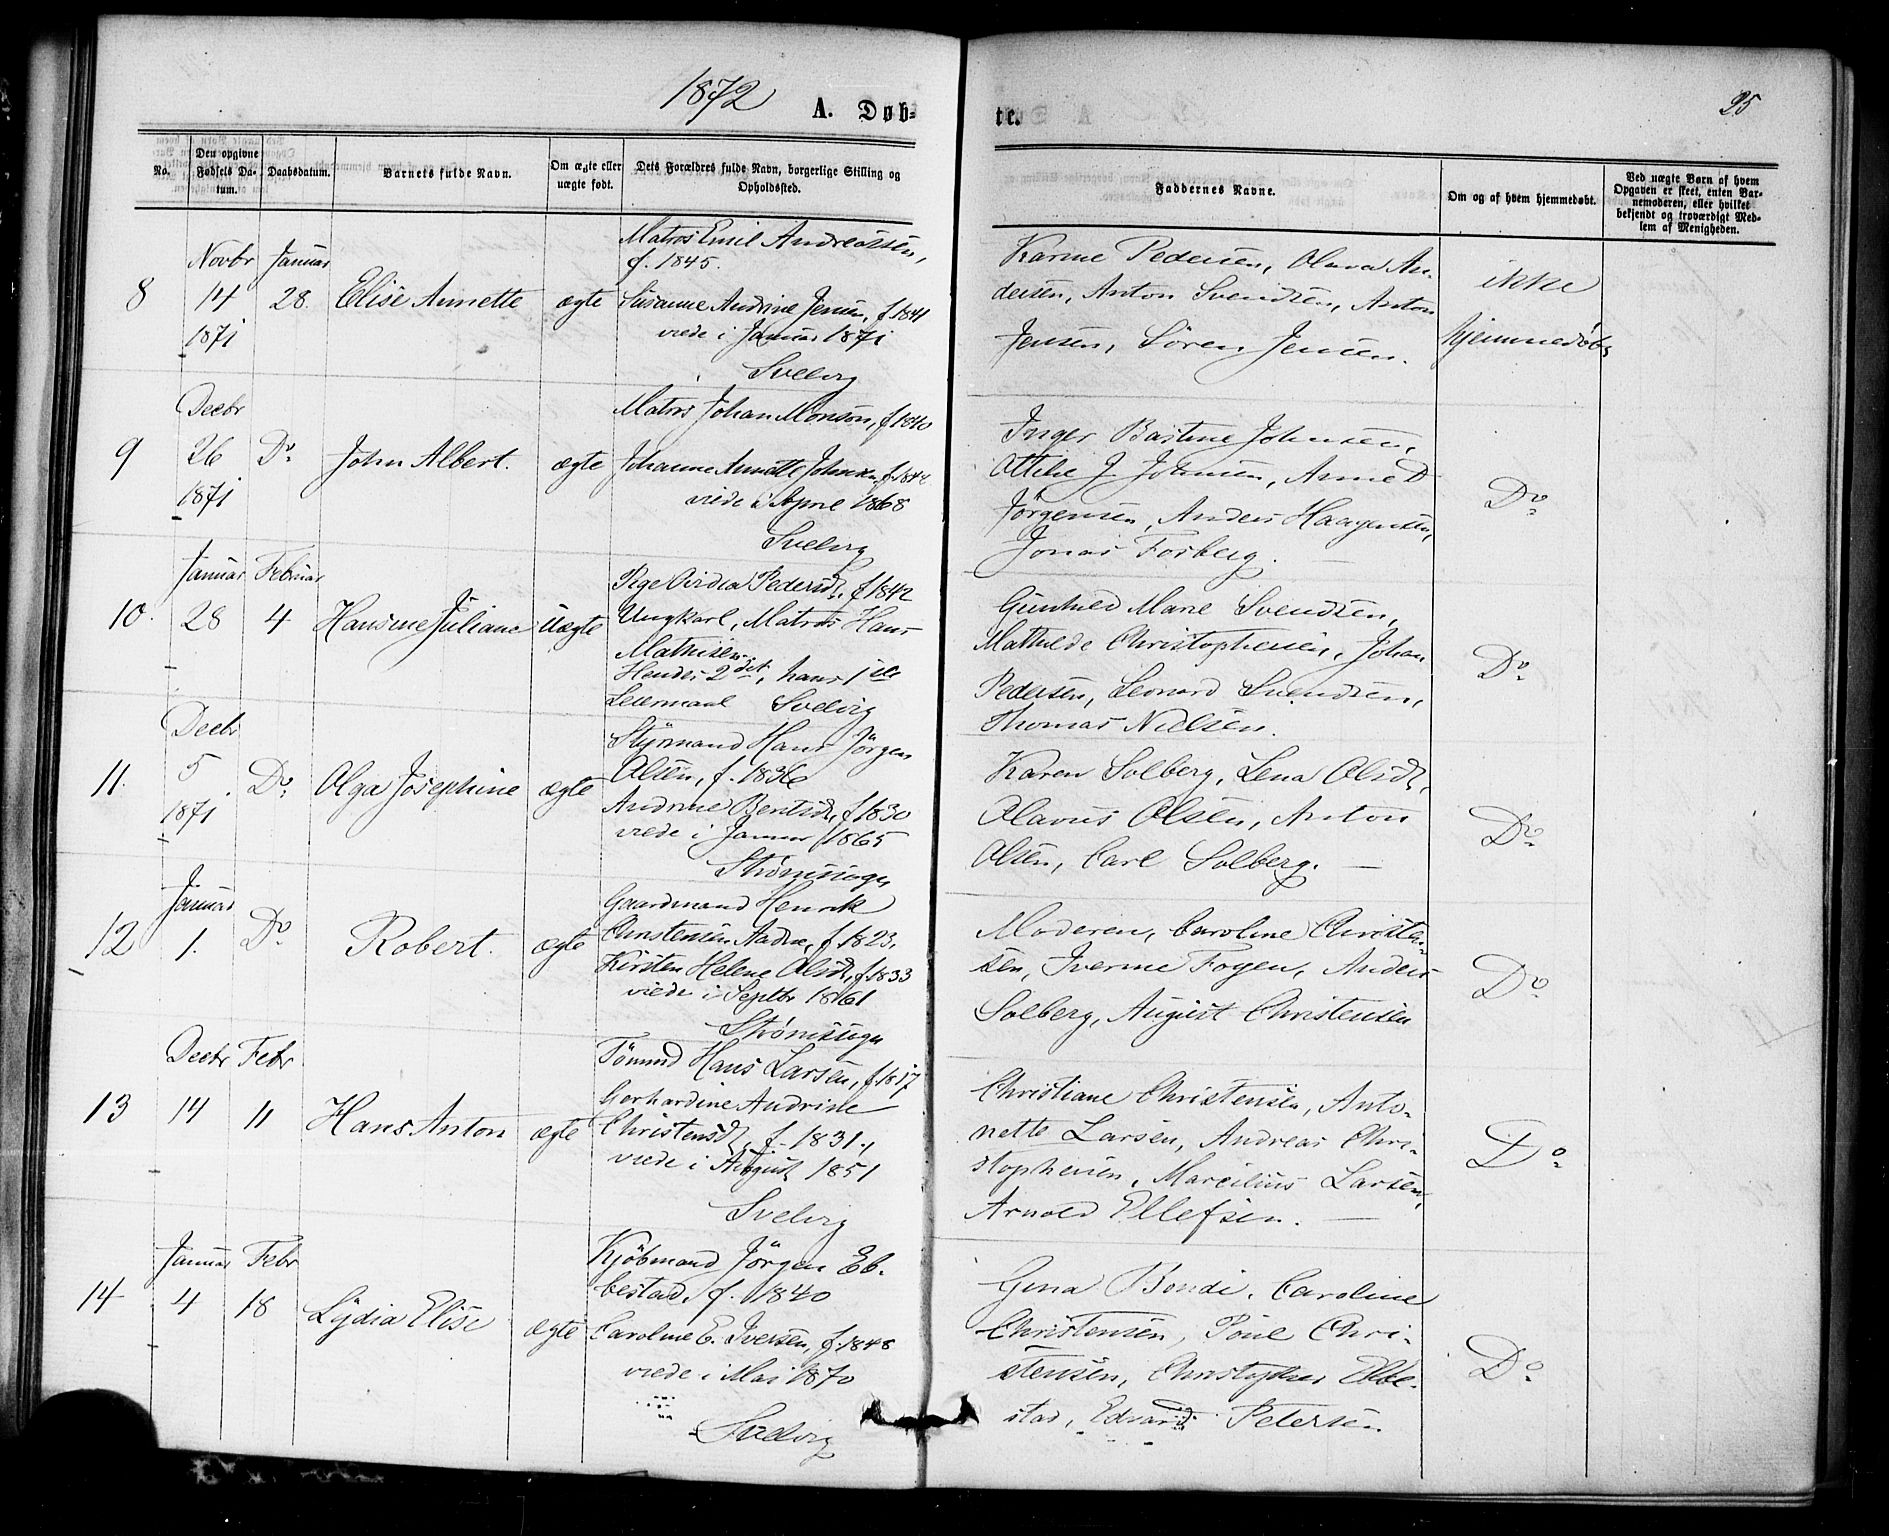 1872
A. Døb-
te.
25
No.
Den opgivne Fødsels Datum.
Daabsdatum.
Barnets fulde Navn.
Om ægte eller uægte født.
Dets Forældres fulde Navn, borgerlige Stilling og Opholdssted.
Faddernes Navne.
Om og af hvem hjemmedøbt.
Ved uægte Børn af hvem Opgaven er skeet, enten Barnemoderen, eller hvilket bekjendt og troværdigt Medlem af Menigheden.
8
Novbr
14
1871
Januar
28.
Elise Annette
ægte
Matros Emil Andreassen,
f. 1845.
Susanne Andrine Jensen, f 1841
viede i Januar 1871
Svelvig
Karine Pedersen, Olava An-
dersen, Anton Svendsen, Anton
Jensen, Sören Jensen.
ikke
hjemmedøbt
9
Decbr
26
1871
Do
John Albert.
ægte
Matros Johan Monsen, f 1840
Johanne Annette Johnsen
viede i April 1868
Svelvig
Inger Bastine Johnsen,
Attilie J Johnsen, Anne D
Jörgensen, Anders Haagensen,
Jonas Fosberg.
Do
10.
Januar
28
Februar
4
Hansine Juliane
Uægte
Pige Pedersd., f 1842
Ungkarl, Matros Hans
Mathisen
Hendes 2det, hans 1ste
Leiermaal Svelvig
Gunhild Marie Svendsen,
Mathilde Christophersen, Johan
Pedersen, Leonard Svendsen,
Thomas Nielsen.
Do
11.
Decbr
5
1871
Do
Olga Josephine
ægte
Styrmand Hans Jörgen
Olsen, f. 1836
Andrine Bentsd., f 1830
viede i Januar 1865
Strömssogn
Karen Solberg, Lena Olsd.,
Olavus Olsen, Anton
Olsen, Carl Solberg.
Do
12
Januar
1.
Do
Robert.
ægte
Gaardmand Henrik
Christensen, f 1823,
Kirsten Helene Olsd., f. 1833
viede i Septbr 1861
Strömssogn
Moderen, Caroline Christen-
sen, Iverine Fogen, Anders
Solberg, August Christensen
Do
13
Decbr
14
Febr
11
Hans Anton
ægte
Tömmd Hans Larsen, f 1817
Gerhardine Andrine
Christensd., f. 1831,
viede i August 1851
Svelvig
Christiane Christensen, Anto-
nette Larsen, Andreas Chri-
stophersen, Marcilius Larsen,
Arnold Ellefsen.
Do
14
Januar
4
Febr
18
Lydia Elise
ægte
Kjöbmand Jörgen Eb-
bestad, f. 1840
Caroline E. Iversen, f. 1848
viede i Mai 1870
Svelvig
Gina Bondi, Caroline
Christensen, Poul Chri-
stensen, Christopher Ebbe-
stad, Edvard Petersen
Do